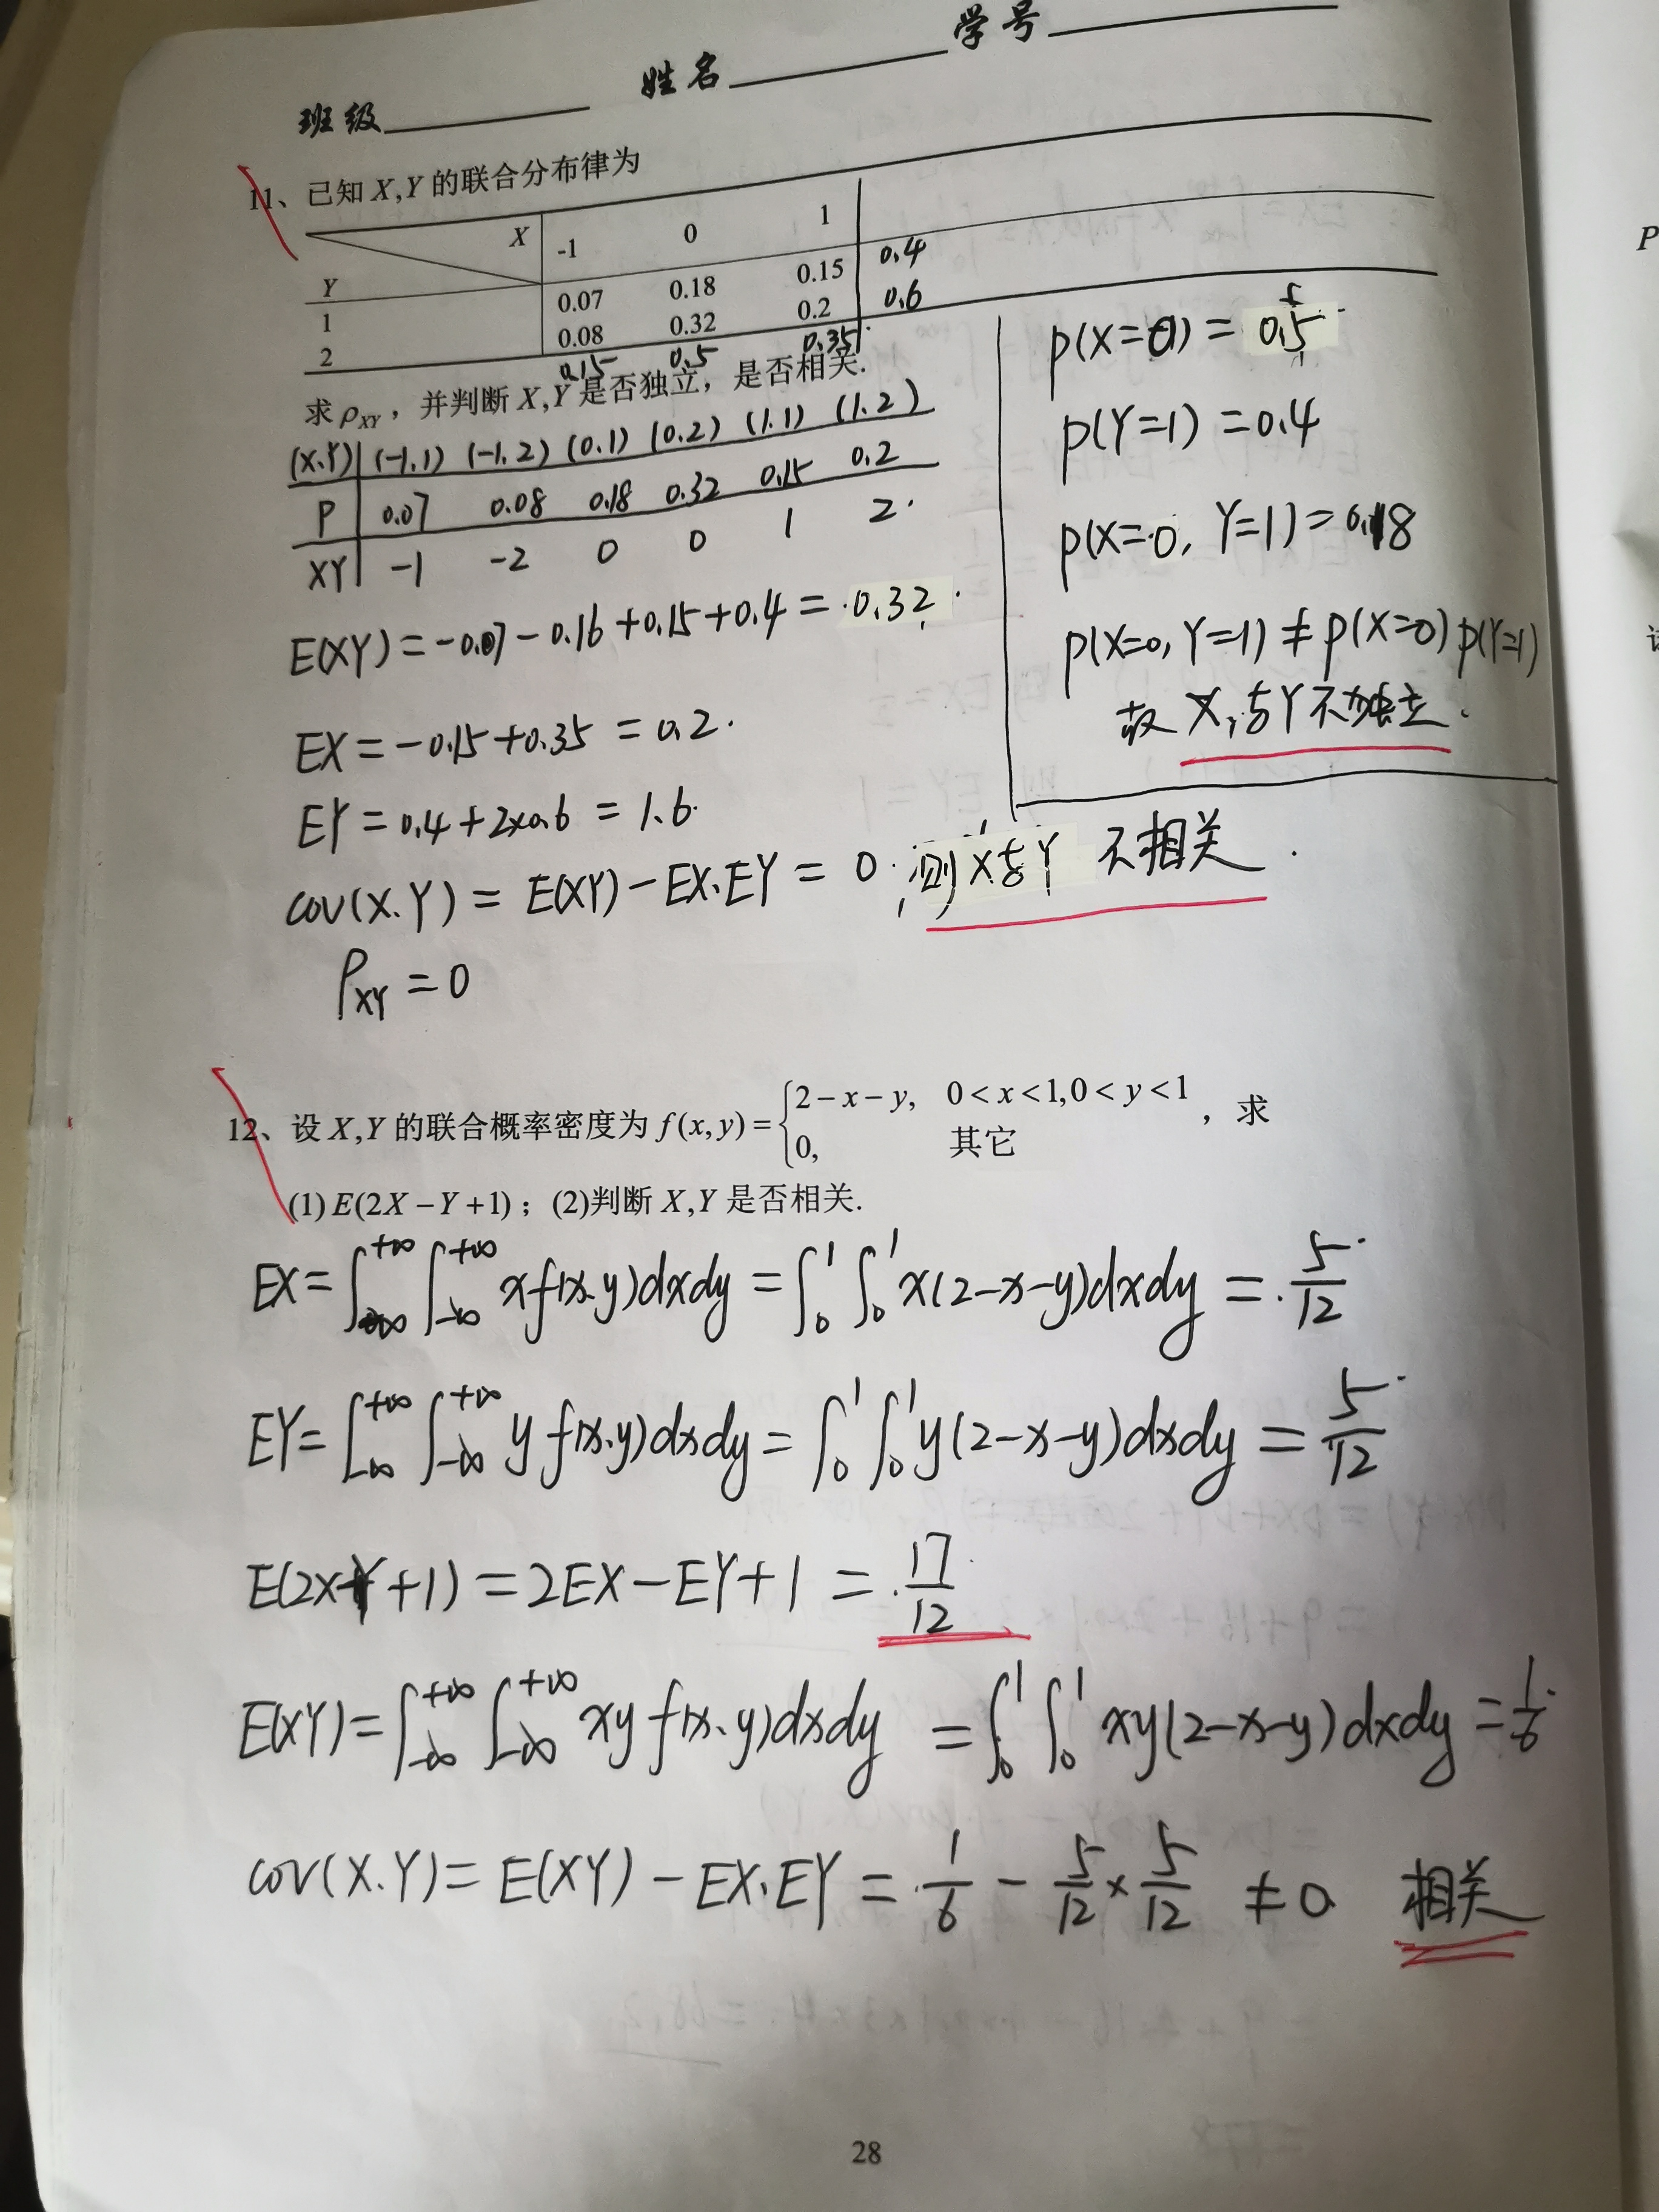 班级 姓名 学号
11、已知 X,Y 的联合分布律为
X -1 0 1
Y
1 0.07 0.18 0.15 0.4
2 0.08 0.32 0.2 0.6
0.15 0.5 0.35
求 ρXY，并判断 X,Y 是否独立，是否相关.
(X.Y) (-1.1) (-1.2) (0.1) (0.2) (1.1) (1.2)
P 0.07 0.08 0.18 0.32 0.15 0.2
XY -1 -2 0 0 1 2
E(XY)=-0.07-0.16+0.15+0.4=0.32
EX=-0.15+0.35=0.2
EY=0.4+2×0.6=1.6
cov(X.Y)=E(XY)-EX.EY=0 则X与Y 不相关.
ρXY=0
p(X=0)=0.5
p(Y=1)=0.4
p(X=0, Y=1)=0.18
p(X=0, Y=1)≠p(X=0)p(Y=1)
故 X,与Y不独立.
12、设 X,Y 的联合概率密度为 f(x,y)={2-x-y, 0<x<1,0<y<1，求
0, 其它
(1) E(2X-Y+1)；(2)判断 X,Y 是否相关.
EX=∫_{-∞}^{+∞}∫_{-∞}^{+∞}xf(x.y)dxdy=∫_0^1∫_0^1x(2-x-y)dxdy=5/12
EY=∫_{-∞}^{+∞}∫_{-∞}^{+∞}yf(x.y)dxdy=∫_0^1∫_0^1y(2-x-y)dxdy=5/12
E(2X-Y+1)=2EX-EY+1=17/12
E(XY)=∫_{-∞}^{+∞}∫_{-∞}^{+∞}xyf(x.y)dxdy=∫_0^1∫_0^1xy(2-x-y)dxdy=1/6
cov(X.Y)=E(XY)-EX.EY=1/6-5/12×5/12≠0 相关
28
P